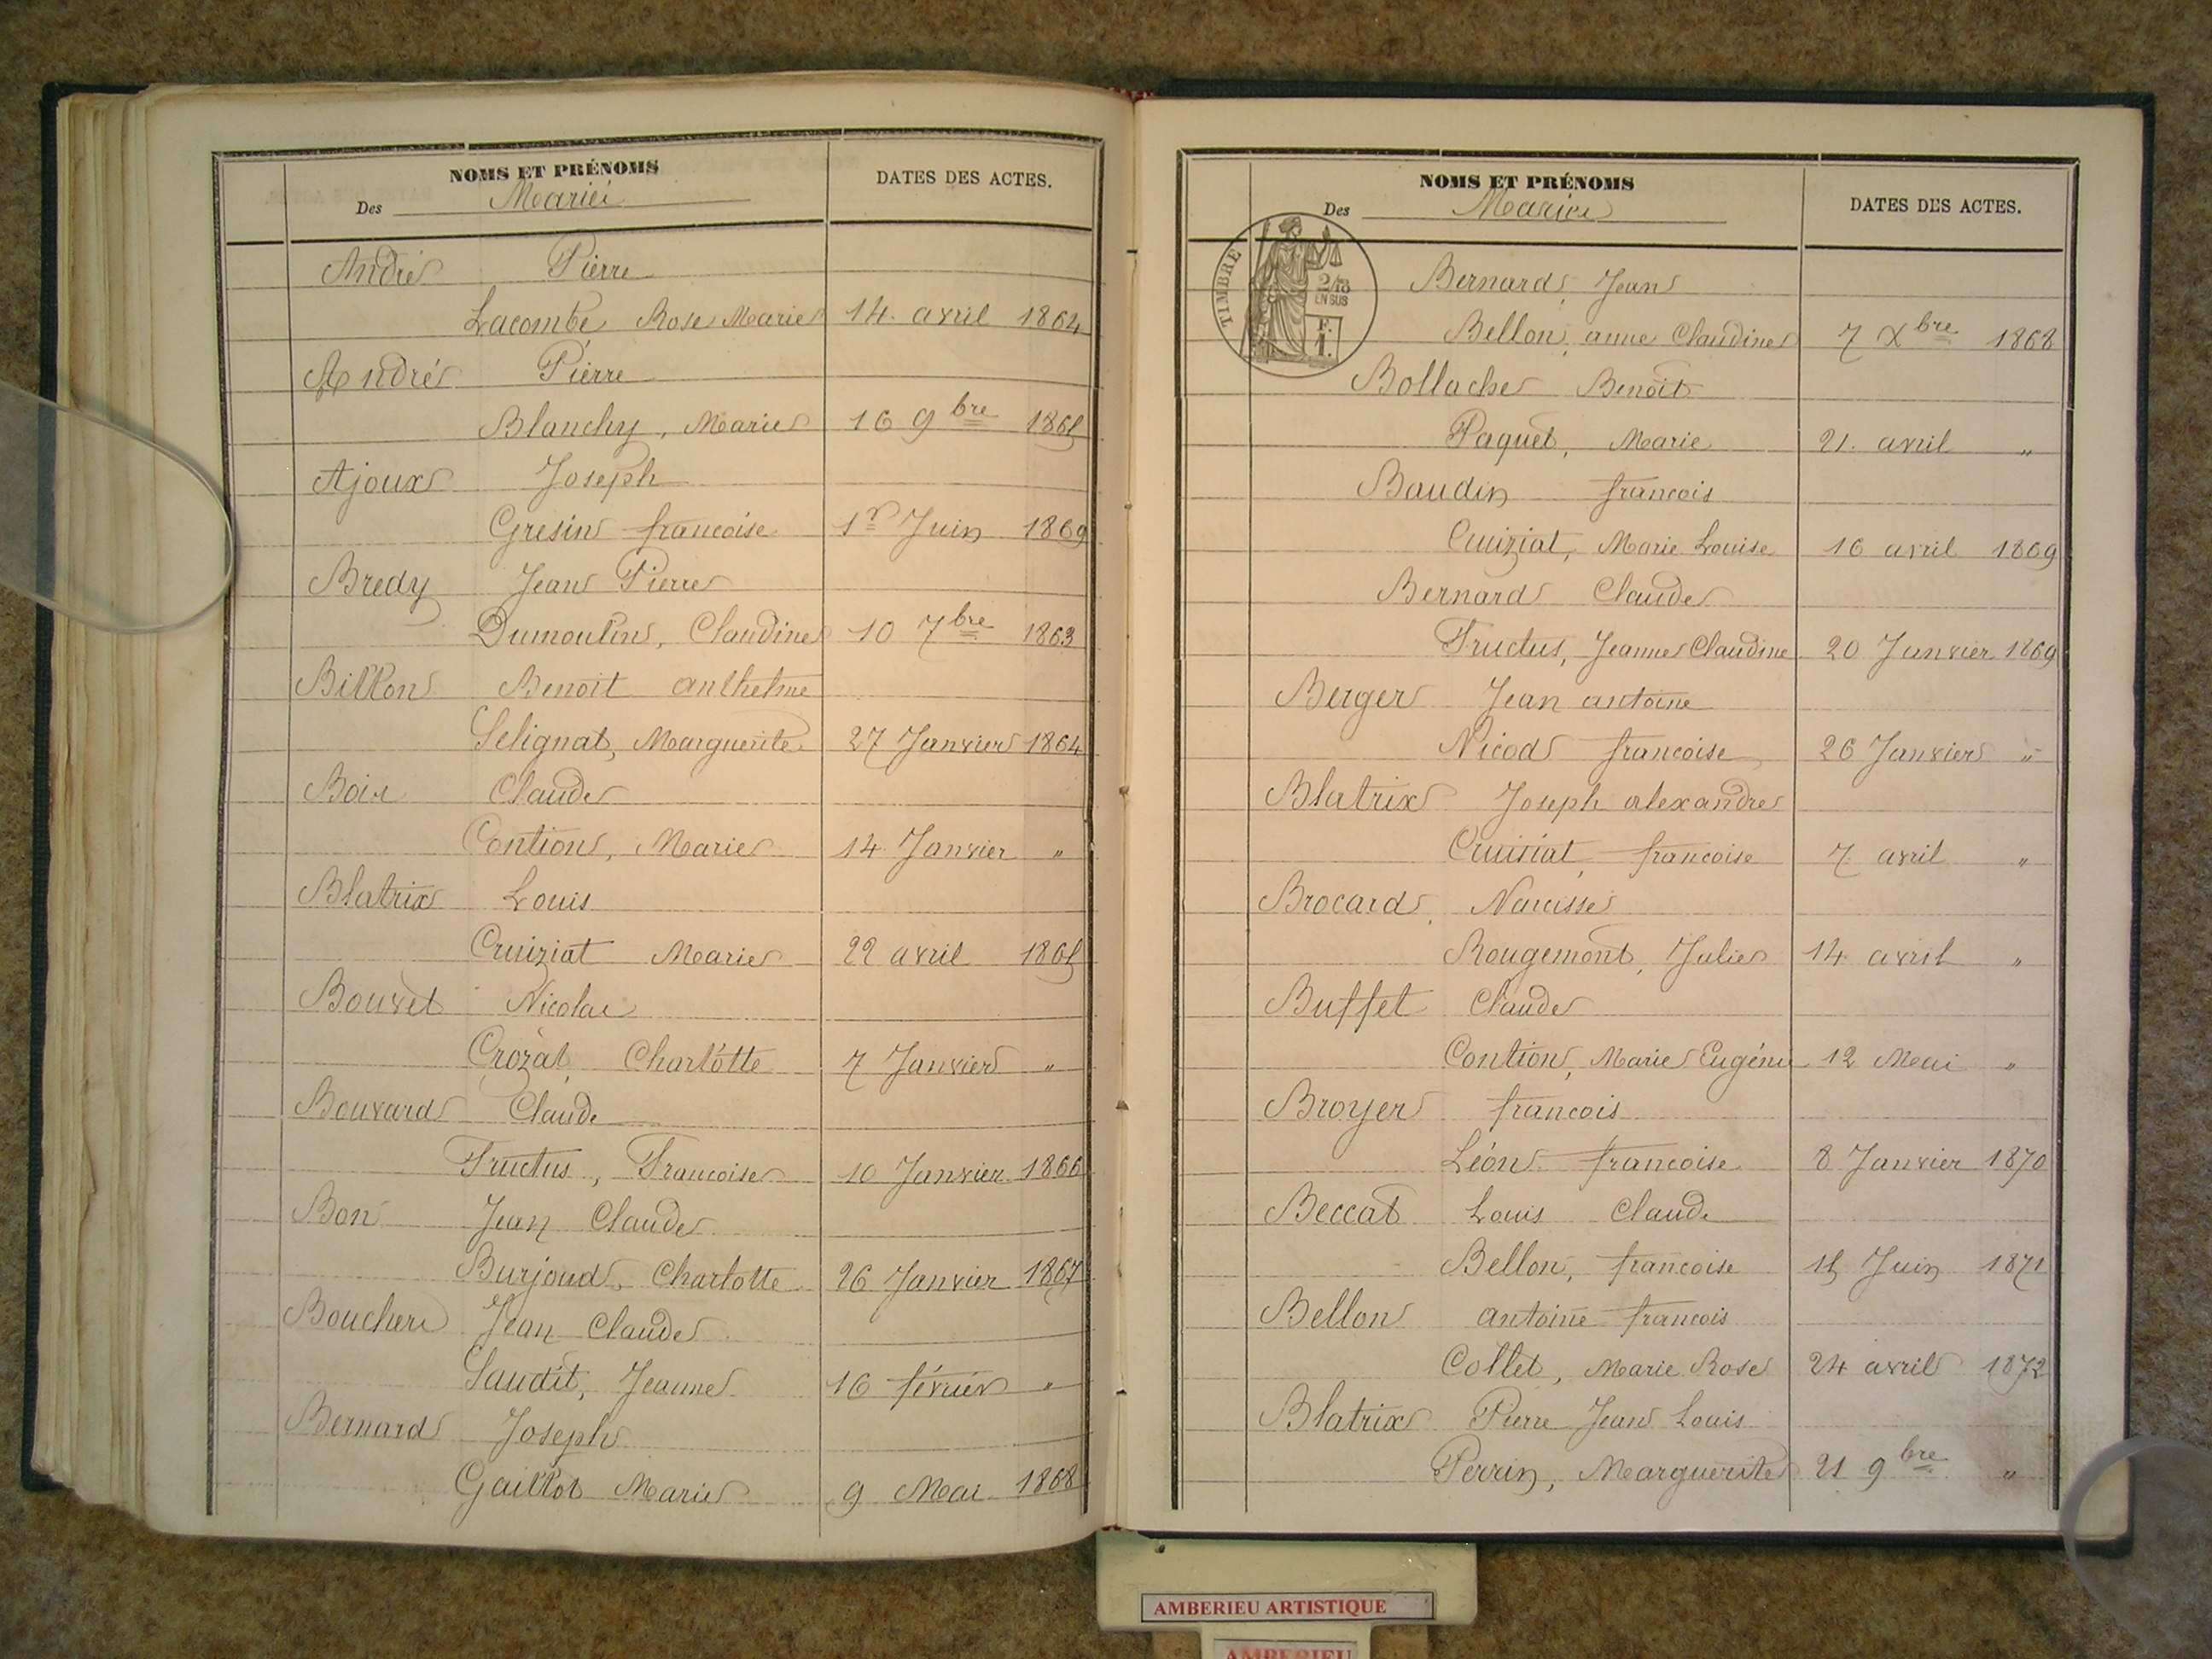 NOMS ET PRÉNOMS
Des Mariés
DATES DES ACTES.
André Pierre
Lacombe Rose Marie 14 avril 1864
André Pierre
Blanchy, Marie 16 9bre 1865
Ajoux Joseph
Gresin francoise 1r Juin 1869
Bredy Jean Pierre
Dumoulin, Claudine 10 7bre 1863
Billon Benoit anthelme
Selignat, Marguerite 27 Janvier 1864
Boir Claude
Contion, Marie 14 Janvier "
Blatrix Louis
Cruiziat Marie 22 avril 1865
Bouvet Nicolas
Crozat, Charlotte 7 Janvier "
Bouvard Claude
Fructus, Francoise 10 Janvier 1866
Bon Jean Claude
Burjoud, Charlotte 26 Janvier 1867
Boucher Jean Claude
Saudit, Jeanne 16 février "
Bernard Joseph
Gaillot Marie 9 Mai 1868
NOMS ET PRÉNOMS
Des Mariés
DATES DES ACTES.
TIMBRE
2/10
EN SUS
F.
1.
Bernard, Jean
Bellon, anne Claudine 7 Xbre 1868
Bollache Benoit
Paquet, Marie 21 avril "
Baudin francois
Cruiziat, Marie Louise 16 avril 1869
Bernard Claude
Fructus, Jeanne Claudine 20 Janvier 1869
Berger Jean antoine
Nicod francoise 26 Janvier "
Blatrix Joseph alexandre
Cruisiat, francoise 7 avril "
Brocard, Narcisse
Rougemont, Julie 14 avril "
Buffet Claude
Contion, Marie Eugénie 12 Mai "
Broyer francois
Léon francoise 8 Janvier 1870
Beccat Louis Claude
Bellon, francoise 15 Juin 1871
Bellon antoine francois
Collet, Marie Rose 24 avril 1872
Blatrix Pierre Jean Louis
Perrin, Marguerite 21 9bre "
AMBERIEU ARTISTIQUE
AMBERIEU